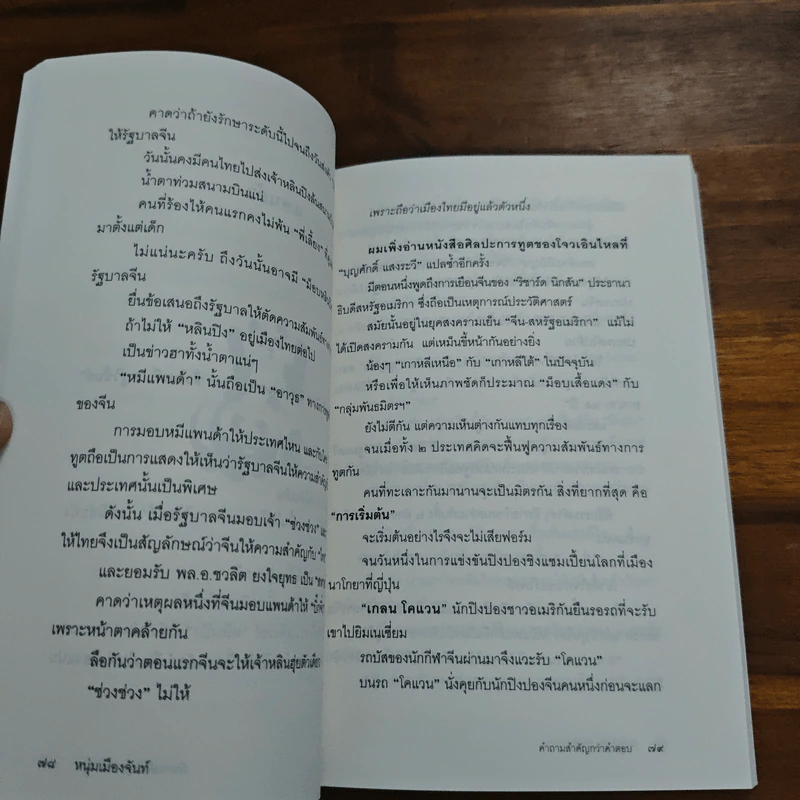 คาดว่าถ้ายังรักษาระดับนี้ไปจนถึงวันส่งตัว
ให้รัฐบาลจีน
วันนั้นคงมีคนไทยไปส่งเจ้าหลินปิงล้นสนามบิน
น้ำตาท่วมสนามบินแน่
คนที่ร้องไห้คนแรกคงไม่พ้น “พี่เลี้ยง”
มาตั้งแต่เด็ก
ไม่แน่นะครับ ถึงวันนั้นอาจมี
รัฐบาลจีน
ยื่นข้อเสนอถึงรัฐบาลให้ตัดความสัมพันธ์
ถ้าไม่ให้ “หลินปิง” อยู่เมืองไทยต่อไป
เป็นข่าวฮาทั้งน้ำตาแน่ๆ
“หมีแพนด้า” นั้นถือเป็น “อาวุธ”
ของจีน
การมอบหมีแพนด้าให้ประเทศไหน
ทูตถือเป็นการแสดงให้เห็นว่ารัฐบาลจีนให้ความสำคัญ
และประเทศนั้นเป็นพิเศษ
ดังนั้น เมื่อรัฐบาลจีนมอบเจ้า “ช่วงช่วง”
ให้ไทยจึงเป็นสัญลักษณ์ว่าจีนให้ความสำคัญกับ
และยอมรับ พล.อ.ชวลิต ยงใจยุทธ เป็น
คาดว่าเหตุผลหนึ่งที่จีนมอบแพนด้าให้
เพราะหน้าตาคล้ายกัน
ลือกันว่าตอนแรกจีนจะให้เจ้าหลินฮุ่ยตัวเดียว
“ช่วงช่วง” ไม่ให้
๗๘ หนุ่มเมืองจันท์
เพราะถือว่าเมืองไทยมีอยู่แล้วตัวหนึ่ง
ผมเพิ่งอ่านหนังสือศิลปะการทูตของโจวเอินไหลที่
“บุญศักดิ์ แสงระวี” แปลซ้ำอีกครั้ง
มีตอนหนึ่งพูดถึงการเยือนจีนของ “ริชาร์ด นิกสัน” ประธานา
ธิบดีสหรัฐอเมริกา ซึ่งถือเป็นเหตุการณ์ประวัติศาสตร์
สมัยนั้นอยู่ในยุคสงครามเย็น “จีน-สหรัฐอเมริกา” แม้ไม่
ได้เปิดสงครามกัน แต่เหม็นขี้หน้ากันอย่างยิ่ง
น้องๆ “เกาหลีเหนือ” กับ “เกาหลีใต้” ในปัจจุบัน
หรือเพื่อให้เห็นภาพชัดก็ประมาณ “ม็อบเสื้อแดง” กับ
“กลุ่มพันธมิตรฯ”
ยังไม่ตีกัน แต่ความเห็นต่างกันแทบทุกเรื่อง
จนเมื่อทั้ง ๒ ประเทศคิดจะฟื้นฟูความสัมพันธ์ทางการ
ทูตกัน
คนที่ทะเลาะกันมานานจะเป็นมิตรกัน สิ่งที่ยากที่สุด คือ
“การเริ่มต้น”
จะเริ่มต้นอย่างไรจึงจะไม่เสียฟอร์ม
จนวันหนึ่งในการแข่งขันปิงปองชิงแชมเปี้ยนโลกที่เมือง
นาโกยาที่ญี่ปุ่น
“เกลน โคแวน” นักปิงปองชาวอเมริกันยืนรอรถที่จะรับ
เขาไปยิมเนเซี่ยม
รถบัสของนักกีฬาจีนผ่านมาจึงแวะรับ “โคแวน”
บนรถ “โคแวน” นั่งคุยกับนักปิงปองจีนคนหนึ่งก่อนจะแลก
คำถามสำคัญกว่าคำตอบ ๗๙